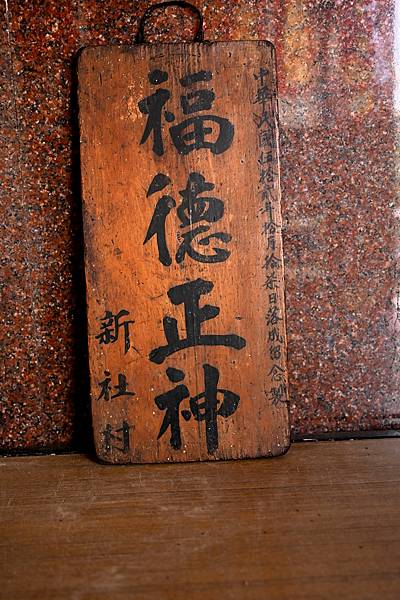 中華民國伍拾年拾月拾日落成留念
福德正神
新社村